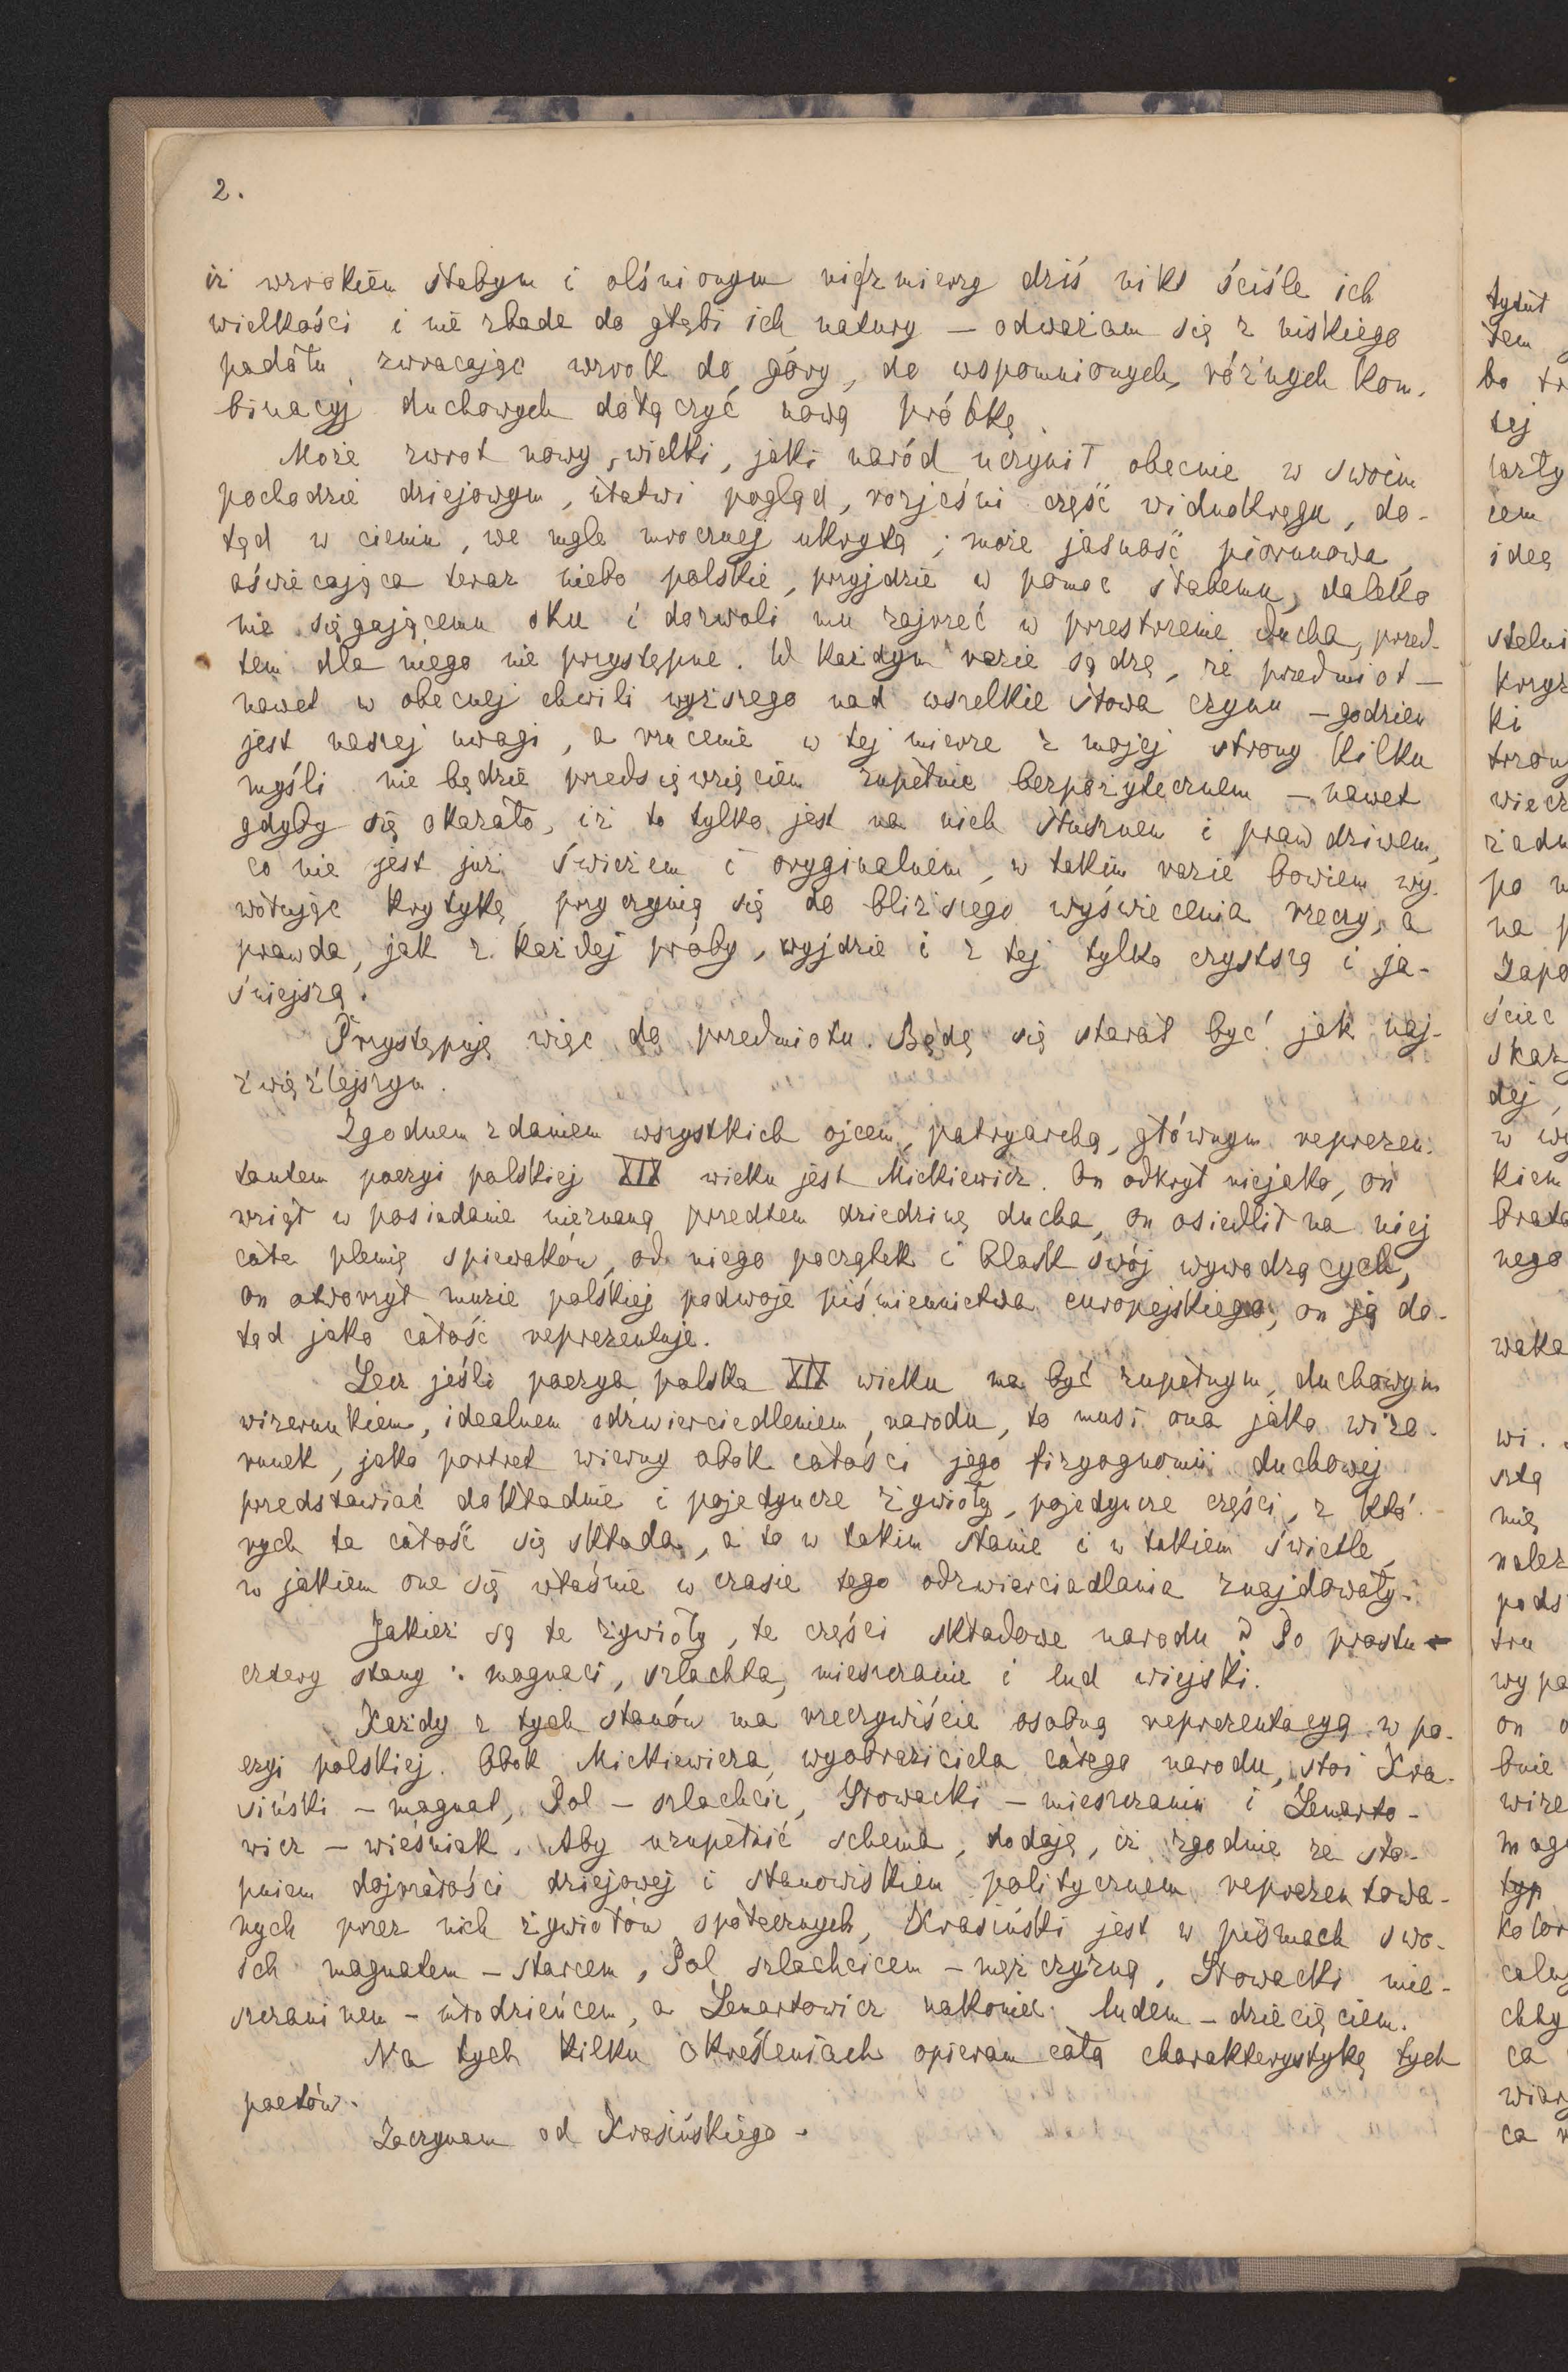 2.
iż wzrokiem słabym i olśnionym nie zmierzy dziś nikt ściśle ich
wielkości i nie zbada do głębi ich natury — odważam się z niskiego
padołu, zwracając wzrok do góry, do wspomnionych, różnych kom-
binacyj duchowych dołączyć nową próbkę.
Może zwrot nowy, wielki, jaki naród uczynił obecnie w swoim
pochodzie dziejowym, ułatwi pogląd, rozjaśni część widnokręgu, do-
tąd w cieniu, we mgle mrocznej ukrytą; może jasność piorunowa,
oświecająca teraz niebo polskie, przyjdzie w pomoc słabemu, daleko
nie sięgającemu oku i dozwoli mu zajrzeć w przestrzenie ducha, przed-
tem dla niego nie przystępne. W każdym razie sądzę, że przedmiot —
nawet w obecnej chwili wyższego nad wszelkie słowa czynu — godzien
jest naszej uwagi, a rzucenie w tej mierze z mojej strony kilku
myśli nie będzie przedsięwzięciem zupełnie bezpożytecznem — nawet
gdyby się okazało, iż to tylko jest na nich słusznem i prawdziwem,
co nie jest już świeżem i oryginalnem, w takim razie bowiem wy-
wołując krytykę, przyczynią się do bliższego wyświecenia rzeczy, a
prawda, jak z każdej próby, wyjdzie i z tej tylko czystszą i ja-
śniejszą.
Przystępuję więc do przedmiotu. Będę się starał być jak naj-
zwięźlejszym.
Zgodnem zdaniem wszystkich ojcem, patryarchą, głównym reprezen-
tantem poezyi polskiej XIX wieku jest Mickiewicz. On odkrył niejako, on
wziął w posiadanie nieznaną przedtem dziedzinę ducha, on osiedlił na niej
całe plemię spiewaków, od niego początek i blask swój wywodzących,
on otworzył muzie polskiej podwoje piśmiennictwa europejskiego, on ją do-
tąd jako całość reprezentuje.
Lecz jeśli poezya polska XIX wieku ma być zupełnym, duchowym
wizerunkiem, idealnem odzwierciedleniem narodu, to musi ona jako wize-
runek, jako portret wierny obok całości jego fizyognomii duchowej
przedstawiać dokładnie i pojedyncze żywioły, pojedyncze części, z któ-
rych ta całość się składa, a to w takim stanie i w takiem świetle,
w jakiem one się właśnie w czasie tego odzwierciadlania znajdowały.
Jakież są te żywioły, te części składowe narodu? Po prostu —
cztery stany: magnaci, szlachta, mieszczanie i lud wiejski.
Każdy z tych stanów ma rzeczywiście osobną reprezentacyą w po-
ezyi polskiej. Obok Mickiewicza, wyobraziciela całego narodu, stoi Kra-
siński — magnat, Pol — szlachcic, Słowacki — mieszczanin i Lenarto-
wicz — wieśniak. Aby uzupełnić schema, dodaję, iż zgodnie ze sto-
pniem dojrzałości dziejowej i stanowiskiem politycznem reprezentowa-
nych przez nich żywiołów społecznych, Krasiński jest w pismach swo-
ich magnatem — starcem, Pol szlachcicem — mężczyzną, Słowacki mie-
szczaninem — młodzieńcem, a Lenartowicz nakoniec ludem — dziecięciem.
Na tych kilku określeniach opieram całą charakterystykę tych
poetów.
Zaczynam od Krasińskiego.